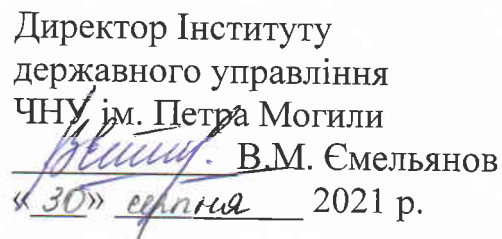 Директор Інституту
державного управління
ЧНУ ім. Петра Могили
В.М. Ємельянов
«30» серпня 2021 р.